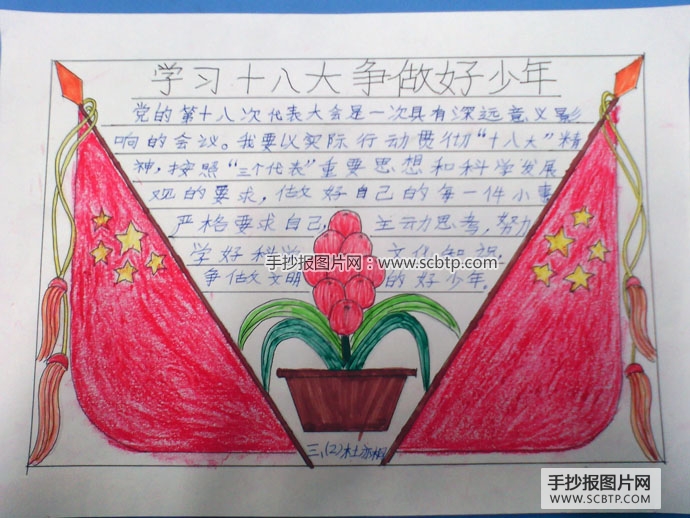 学习十八大争做好少年
党的第十八次代表大会是一次具有深远意义影
响的会议。我要以实际行动贯彻“十八大”精
神，按照“三个代表”重要思想和科学发展
观的要求，做好自己的每一件小事
严格要求自己，主动思考，努力
学好科学 文化知识，
手抄报图片网：www.scbtp.com
争做文明 的好少年。
三、(2)
手抄报图片网
WWW.SCBTP.COM